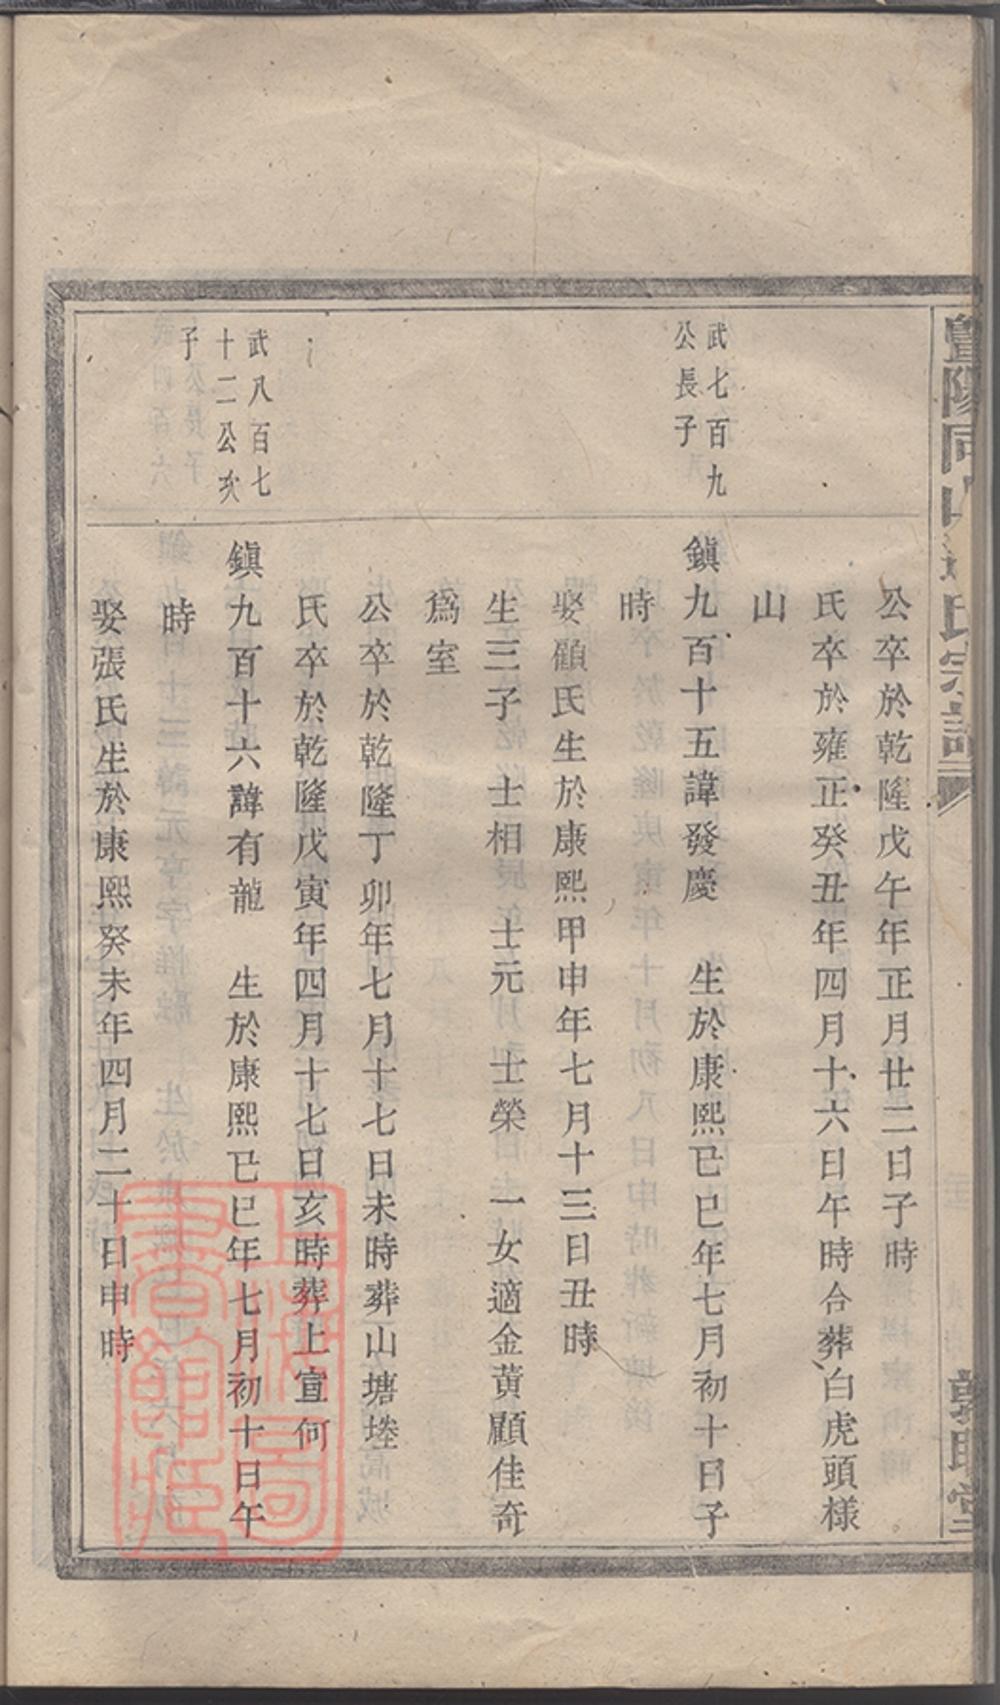 暨陽同山邊氏宗譜
敦睦堂
公卒於乾隆戊午年正月廿二日子時
氏卒於雍正癸丑年四月十六日午時合葬白虎頭樣
山
武七百九
公長子
鎭九百十五諱發慶 生於康熙已巳年七月初十日子
時
娶顧氏生於康熙甲申年七月十三日丑時
生三子 士相 士元 士榮 一女適金黃顧佳奇
爲室
公卒於乾隆丁卯年七月十七日未時葬山塘塍
氏卒於乾隆戊寅年四月十七日亥時葬上宣何
武八百七
十二公次
子
鎭九百十六諱有龍 生於康熙已巳年七月初十日午
時
娶張氏生於康熙癸未年四月二十日申時
上海圖書館藏